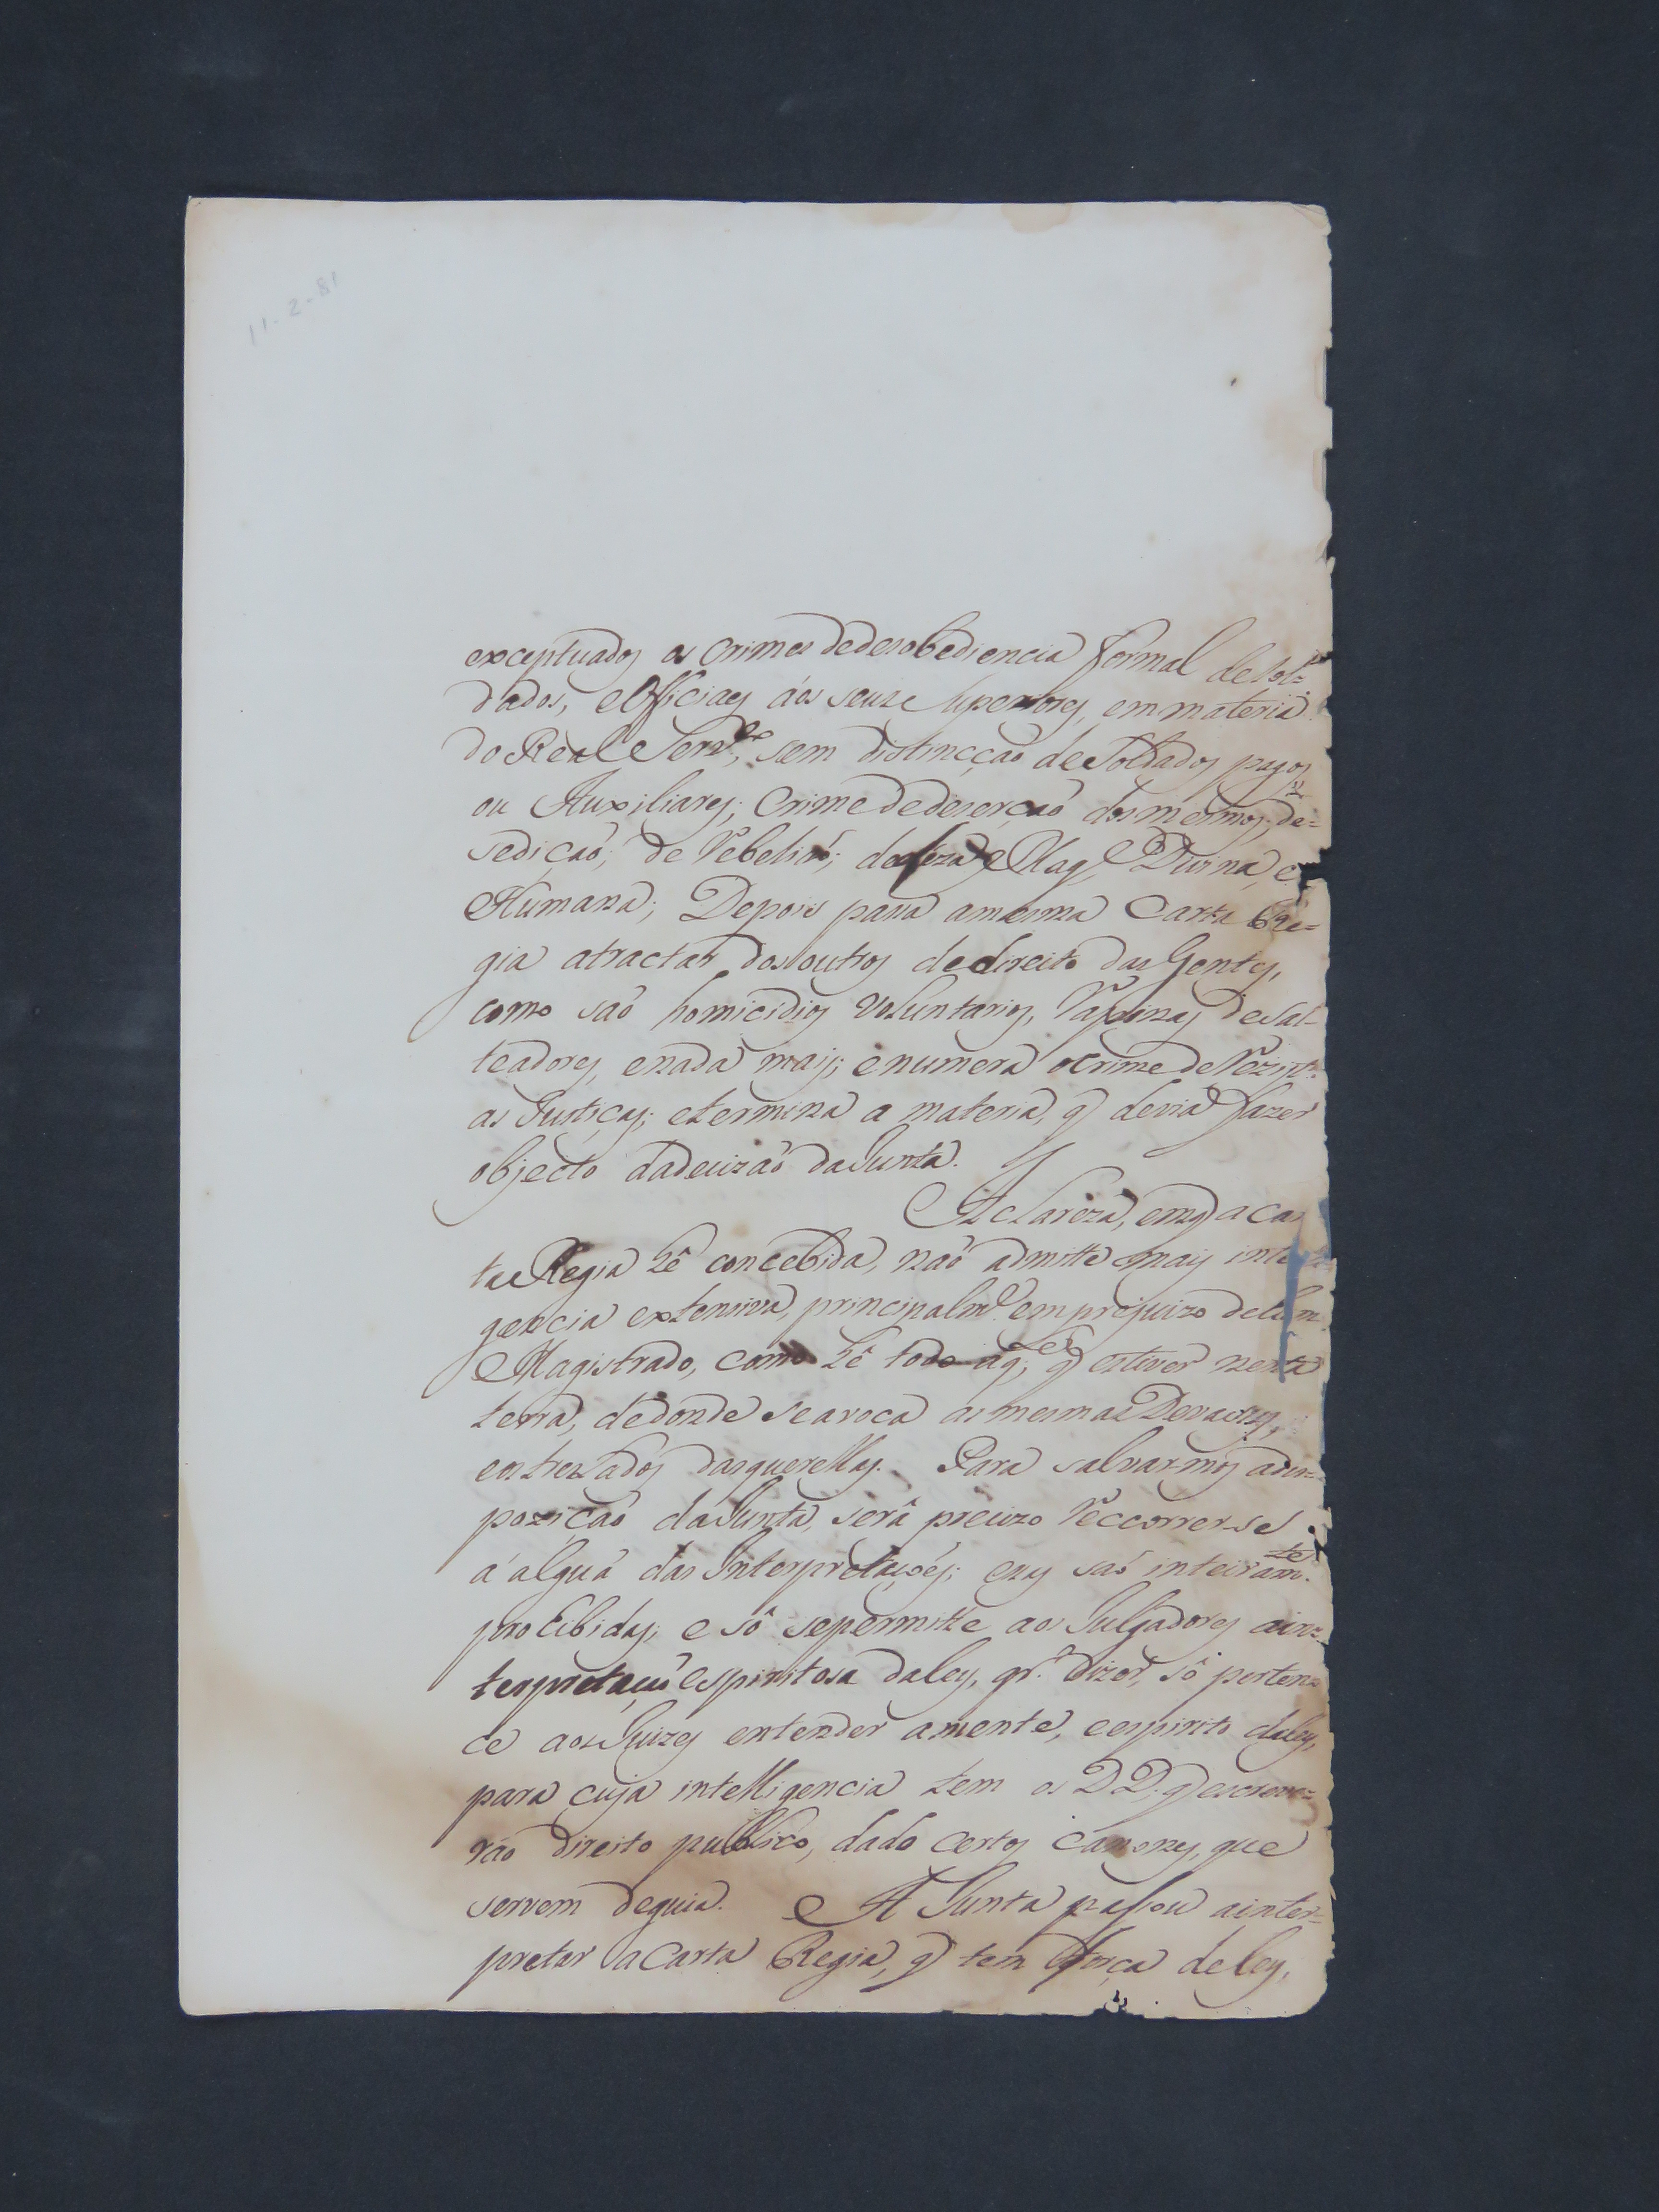 11-2-81
exceptuados os crimes dedesobediencia formal de Sol=
dados, e Officiaes áos seuz Superiores, em materia
do Real Serv.ço, sem distincção de Soldados pagos,
ou Auxiliares; Crime dedeserção dos mesmos; de=
sedição; de Rebelião; de leza Mag.e Divina, e
Humana; Depois passa amesma Carta Re=
gia atractar dos outros dedireito das Gentes,
como são homicidios voluntarios, Rapinas de Sal-
teadores, enada mais; enumera ocrime de Rezist.
as Justiças; etermina a materia, q devia fazer
objecto dadecizão da Junta.
A clareza, emq a Car
ta Regia hê concebida, não admitte mais inte
gencia extensiva, principalm.e em prejuizo de hum
Magistrado, como hê todo aq.le q estiver nesta
terra, dedonde se avoca as mesmas Devaças,
eos treslados dasquerellas. Para salvar-mos adis=
pozição da Junta, serâ precizo Reccorrer-se
á alguá das Interpretaçoés; ezas saó inteiram.te
prohibidas; e sô sepermitte aos Julgadores ain=
terpretação espiritosa da ley, qr. dizer, sô perten=
ce aos Juizes entender amente, eespirito daley,
para cuja intelligencia tem os DD. q escreve=
rão direito publico, dado certos Canones, que
servem deguia. A Junta passou ainter=
pretar a Carta Regia, q tem força deley,